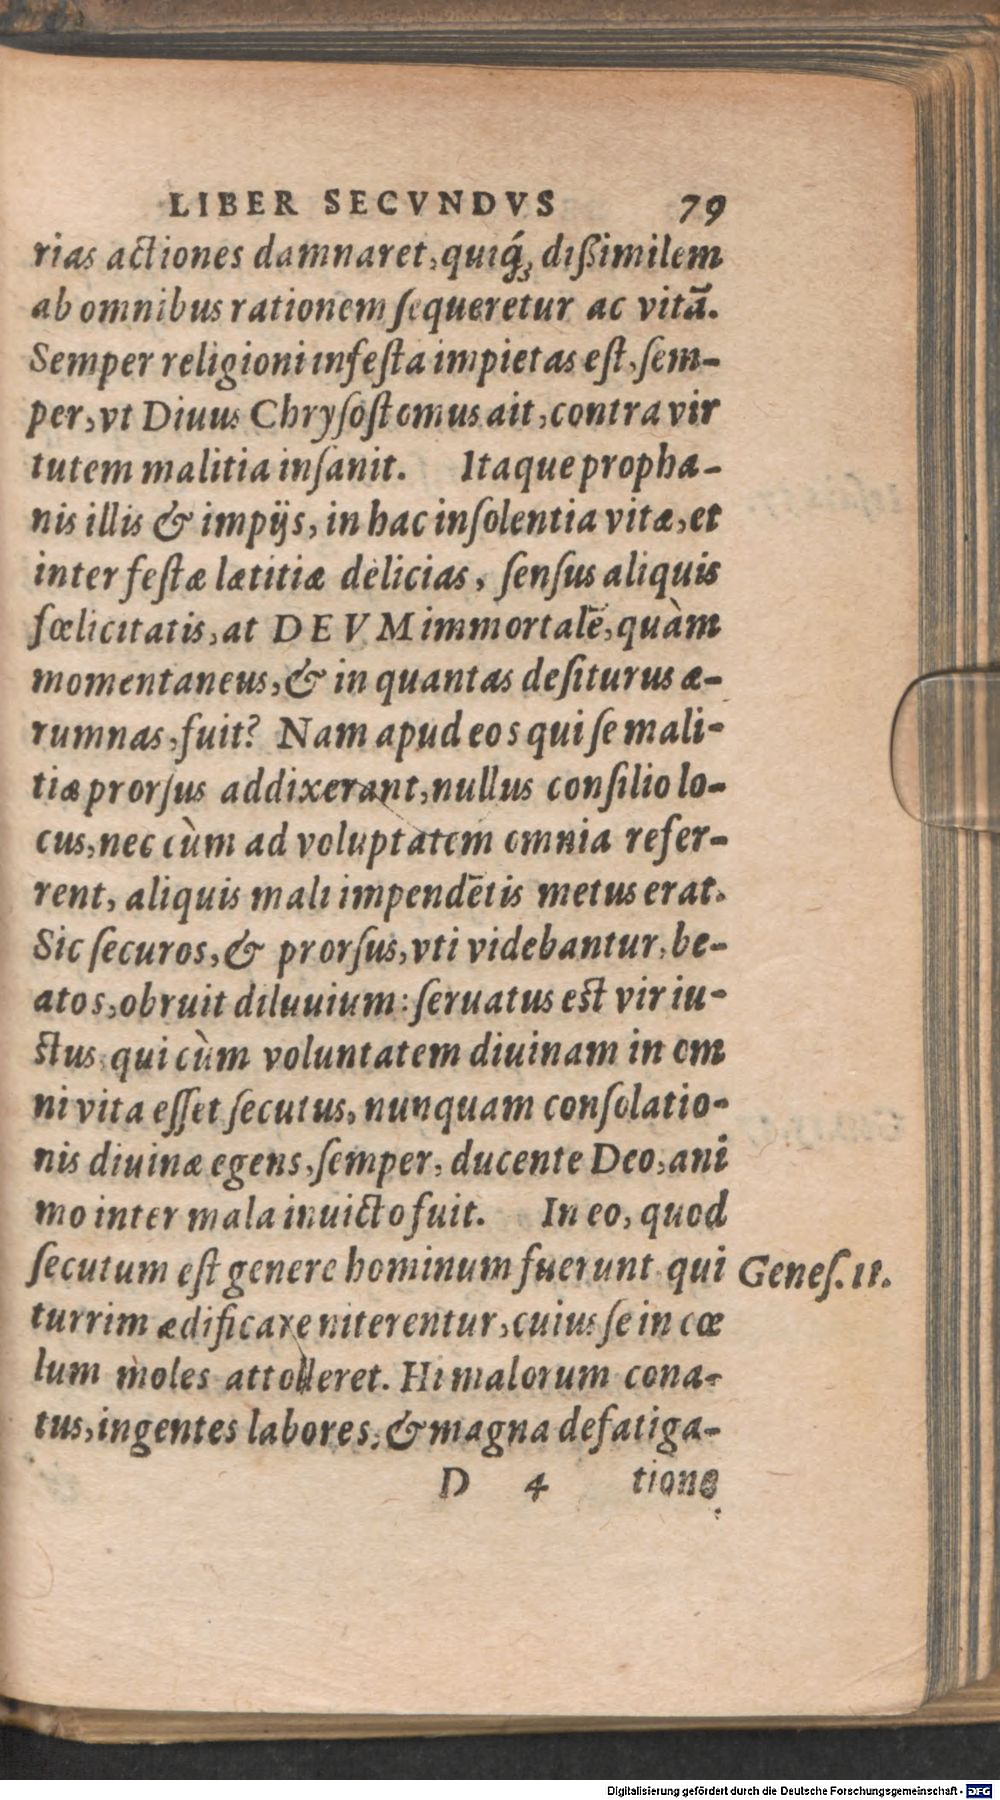 LIBER SECVNDVS 79
rias actiones damnaret, quiq́ꝫ dißimilem
ab omnibus rationem ſequeretur ac vitā.
Semper religioni infeſta impietas eſt, ſem-
per, vt Diuus Chryſoſtomus ait, contra vir
tutem malitia inſanit. Itaque propha-
nis illis & impijs, in hac inſolentia vitæ, et
inter feſtæ lætitiæ delicias, ſenſus aliquis
fœlicitatis, at DEVM immortalē, quàm
momentaneus, & in quantas deſiturus æ-
rumnas, fuit? Nam apud eos qui ſe mali-
tiæ prorſus addixerant, nullus conſilio lo-
cus, nec cùm ad voluptatem omnia refer-
rent, aliquis mali impendētis metus erat.
Sic ſecuros, & prorſus, vti videbantur, be-
atos, obruit diluuium: ſeruatus est vir iu-
stus, qui cùm voluntatem diuinam in om
ni vita eſſet ſecutus, nunquam conſolatio-
nis diuinæ egens, ſemper, ducente Deo, ani
mo inter mala inuicto fuit. In eo, quod
ſecutum eſt genere hominum fuerunt qui
Geneſ. 11.
turrim ædificare niterentur, cuius ſe in cœ
lum moles attolleret. Hi malorum cona-
tus, ingentes labores, & magna defatiga-
D 4 tione
Digitalisierung gefördert durch die Deutsche Forschungsgemeinschaft - DFG